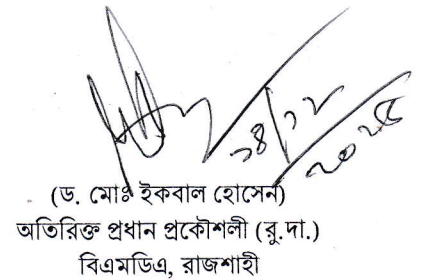 ২৪/১২
২০২৫
(ড. মোঃ ইকবাল হোসেন)
অতিরিক্ত প্রধান প্রকৌশলী (রু.দা.)
বিএমডিএ, রাজশাহী